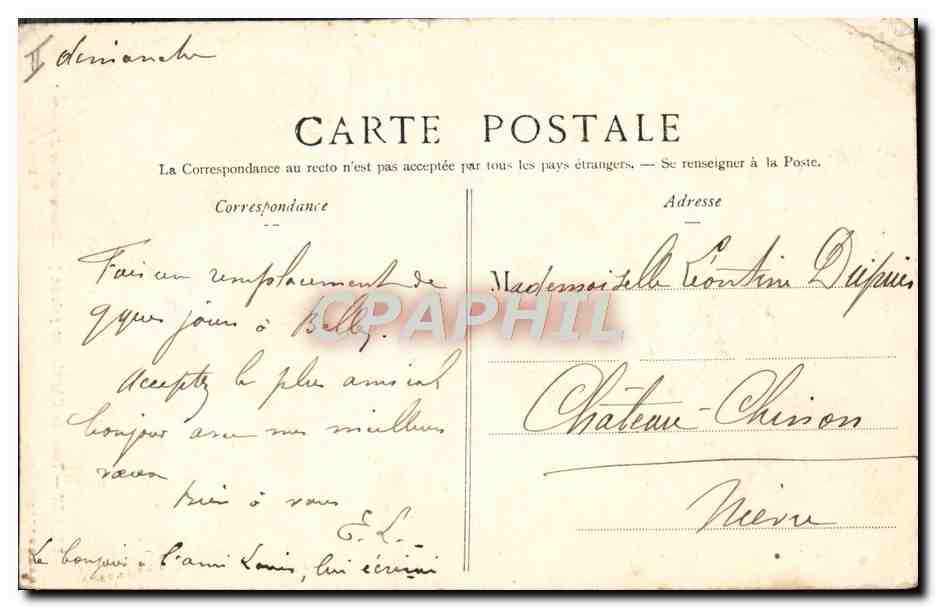 II dimanche
CARTE POSTALE
La Correspondance au recto n'est pas acceptée par tous les pays étrangers. — Se renseigner à la Poste.
Correspondance
Fais un remplacement de
qques jours à Belley.
Acceptez le plus amical
bonjour avec mes meilleurs
vœux
bien à vous
E. L.
Le bonjour à l'ami Louis, lui écrirai
Adresse
Mademoiselle Léontine Dupuis
Château-Chinon
Nièvre
CPAPHIL